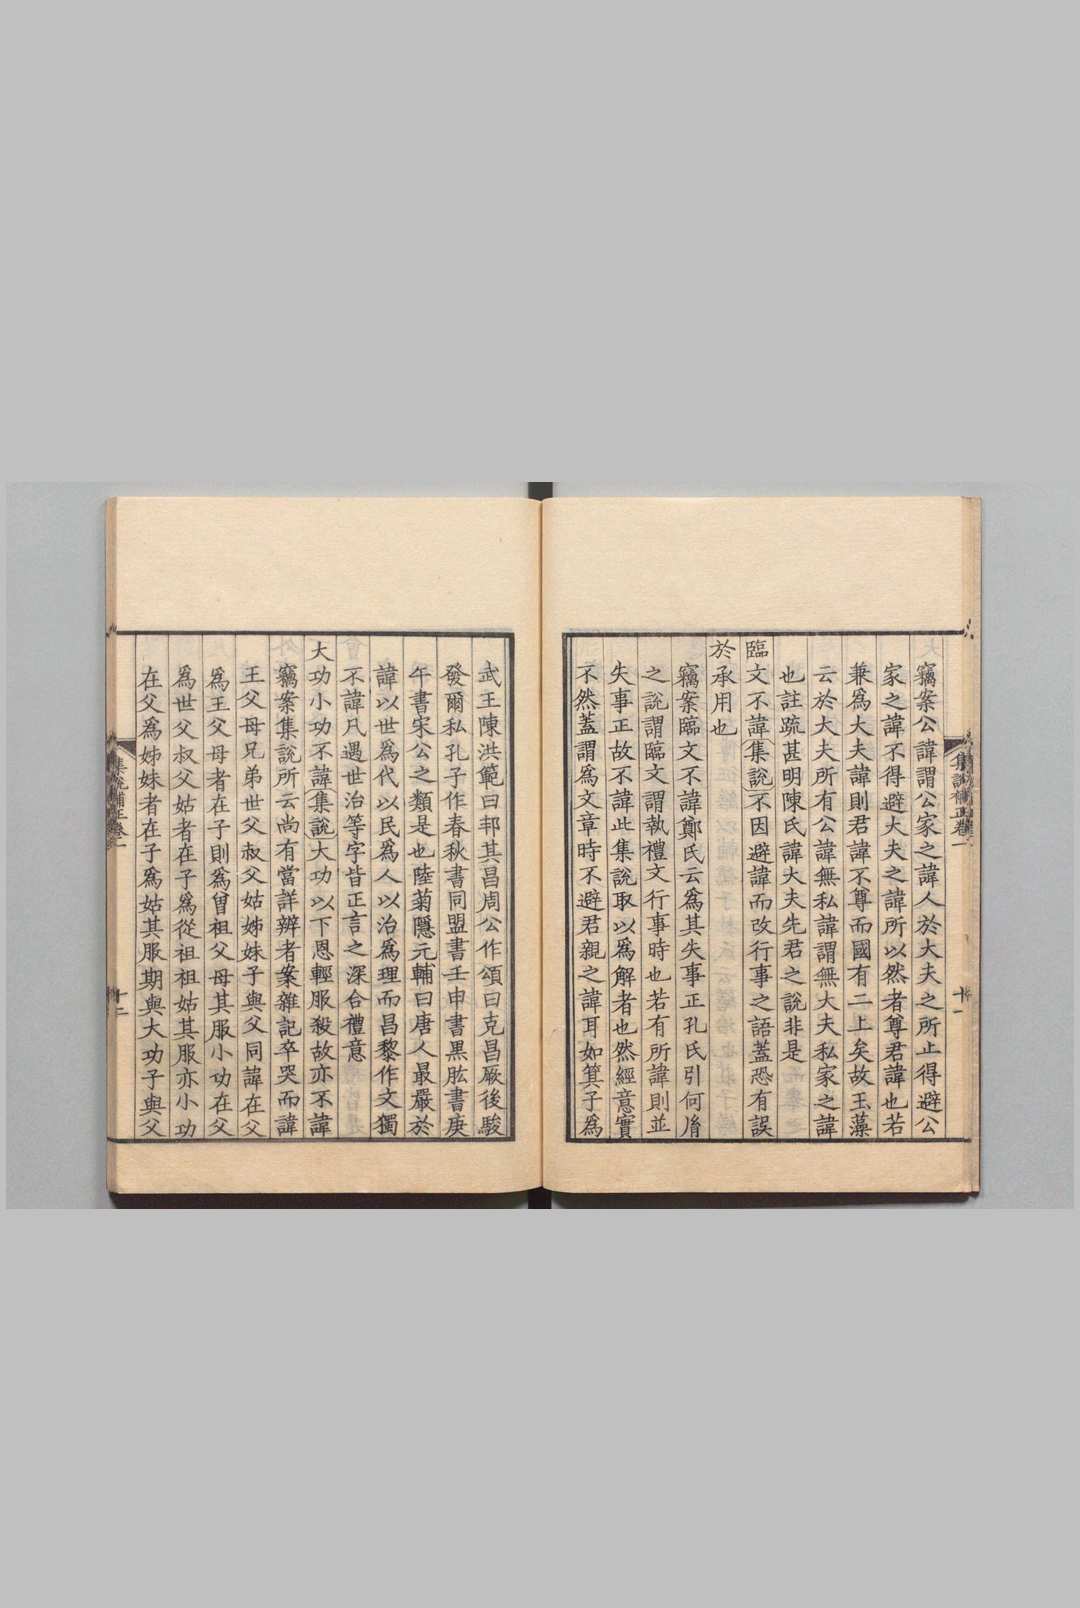 竊案公諱謂公家之諱人於大夫之所止得避公
家之諱不得避大夫之諱所以然者尊君諱也若
兼為大夫諱則君諱不尊而國有二上矣故玉藻
云於大夫所有公諱無私諱謂無大夫私家之諱
也註疏甚明陳氏諱大夫先君之說非是
臨文不諱集說不因避諱而改行事之語蓋恐有誤
於承用也
竊案臨文不諱鄭氏云為其失事正孔氏引何胤
之說謂臨文謂執禮文行事時也若有所諱則並
失事正故不諱此集說取以為解者也然經意實
不然蓋謂為文章時不避君親之諱耳如箕子為
集說補正卷一
十一
武王陳洪範曰邦其昌周公作頌曰克昌厥後駿
發爾私孔子作春秋書同盟書壬申書黑肱書庚
午書宋公之類是也陸菊隱元輔曰唐人最嚴於
諱以世為代以民為人以治為理而昌黎作文獨
不諱凡遇世治等字皆正言之深合禮意
大功小功不諱集說大功以下恩輕服殺故亦不諱
竊案集說所云尚有當詳辨者案雜記卒哭而諱
王父母兄弟世父叔父姑姊妹子與父同諱在父
為王父母者在子則為曾祖父母其服小功在父
為世父叔父姑者在子為從祖祖姑其服亦小功
在父為姊妹者在子為姑其服期與大功子與父
集說補正卷一
十二